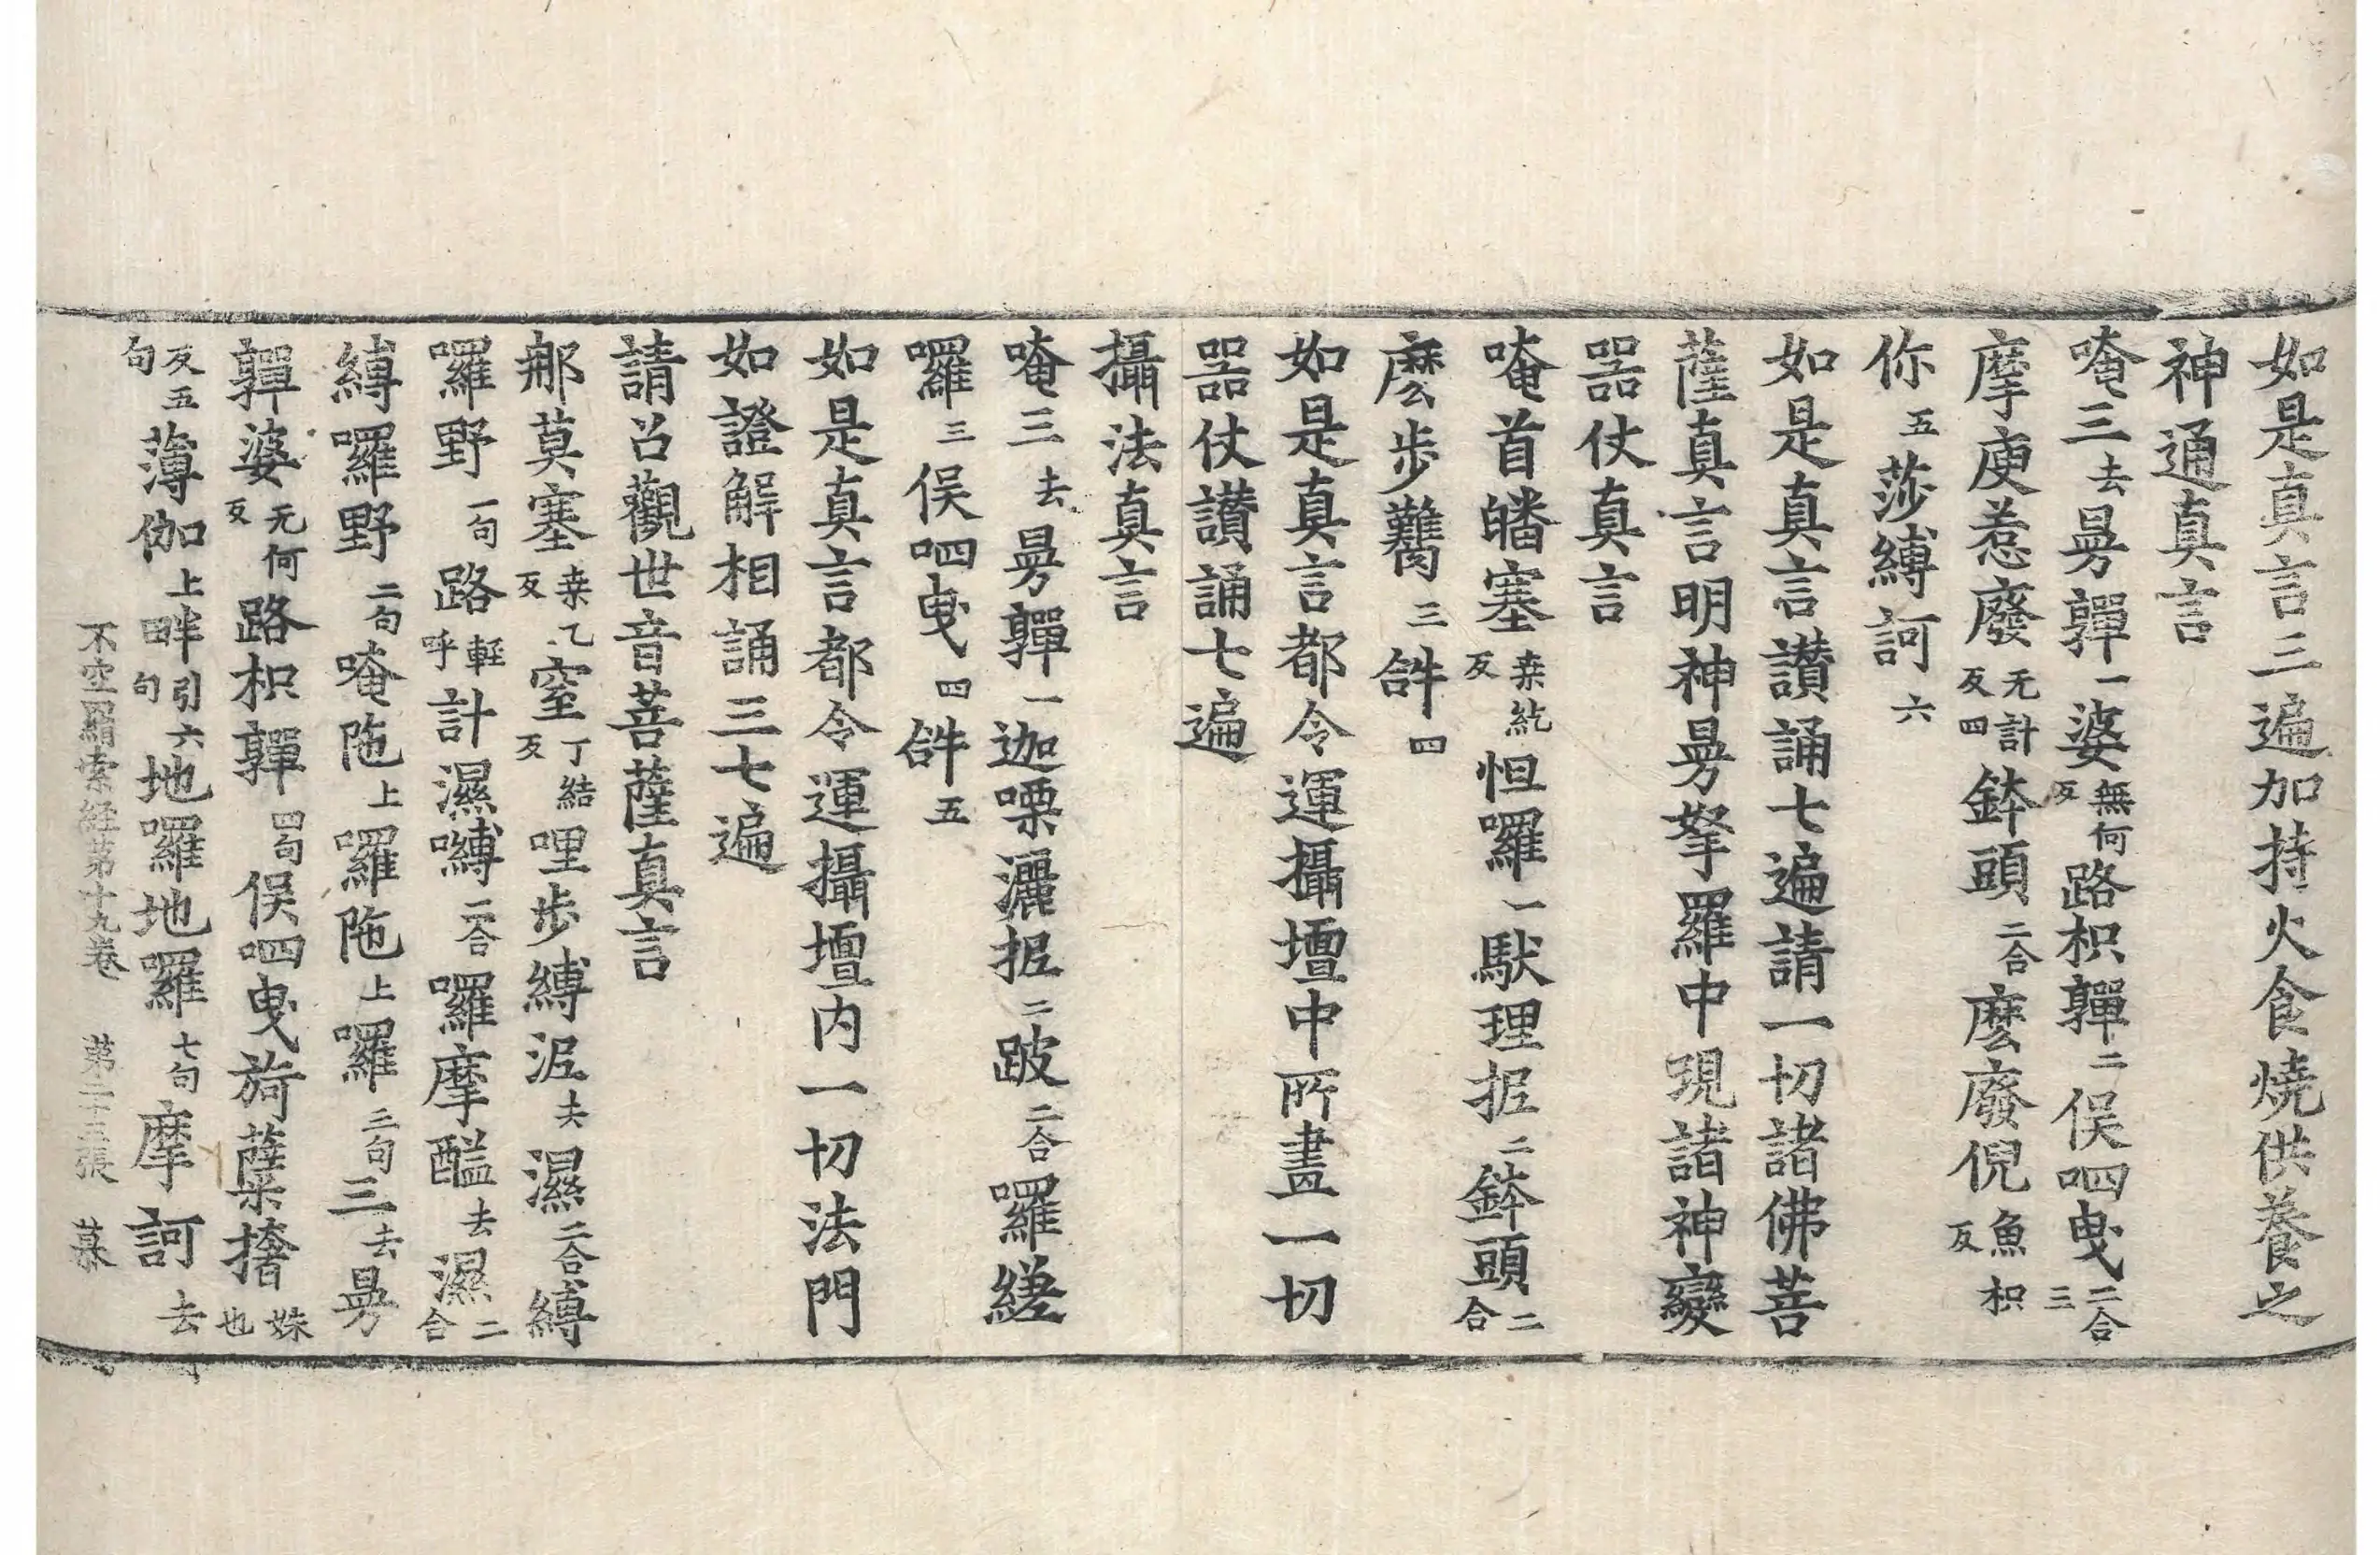 如是真言三遍加持火食燒供養之
神通真言
唵三去曼嚲一婆無何反路枳嚲二俁呬曳二合三
摩庾惹廢无計反四鉢頭二合麽廢倪魚枳反
你五莎縛訶六
如是真言讃誦七遍請一切諸佛菩
薩真言明神曼拏羅中現諸神變
器仗真言
唵首皤塞桒紇反怛囉一馱理抳二鉢頭二合
麽步鸘三𤙖四
如是真言都令運攝壇中所畫一切
器仗讃誦七遍
攝法真言
唵三去曼嚲一迦㗚灑抳二跛二合囉縒
囉三俁呬曳四𤙖五
如是真言都令運攝壇内一切法門
如證解相誦三七遍
請召觀世音菩薩真言
那莫塞桒乙反窒丁結反哩步縛泥去濕二合縛
囉野一句路輕呼計濕嚩二合囉摩醯去濕二合
縛囉野二句唵陁上囉陁上囉三句三去曼
嚲婆无何反路枳嚲四句俁呬曳旖薩㩉姝也
反五句薄伽上畔引六句地囉地囉七句摩訶去
不空罥索經第十九卷 第二十三張 慕